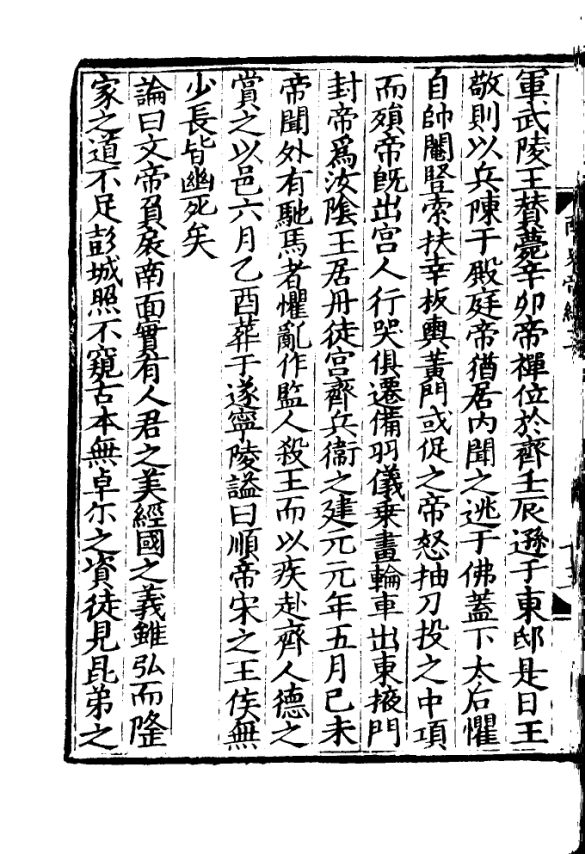 軍武陵王賛薨辛卯帝禪位於齊壬辰遜于東邸是日王
敬則以兵陳于殿庭帝猶居内聞之逃于佛蓋下太后懼
自帥閹豎索扶幸板輿黃門或促之帝怒抽刀投之中項
而殞帝既出宫人行哭俱遷備羽儀乗畫輪車出東掖門
封帝爲汝隂王居丹徒宫齊兵衞之建元元年五月己未
帝聞外有馳馬者懼亂作監人殺王而以疾赴齊人德之
賞之以邑六月乙酉葬于遂寧陵謚曰順帝宋之王侯無
少長皆幽死矣
論曰文帝負扆南面實有人君之美經國之義雖弘而隆
家之道不足彭城照不窺古本無卓尔之資徒見昆弟之